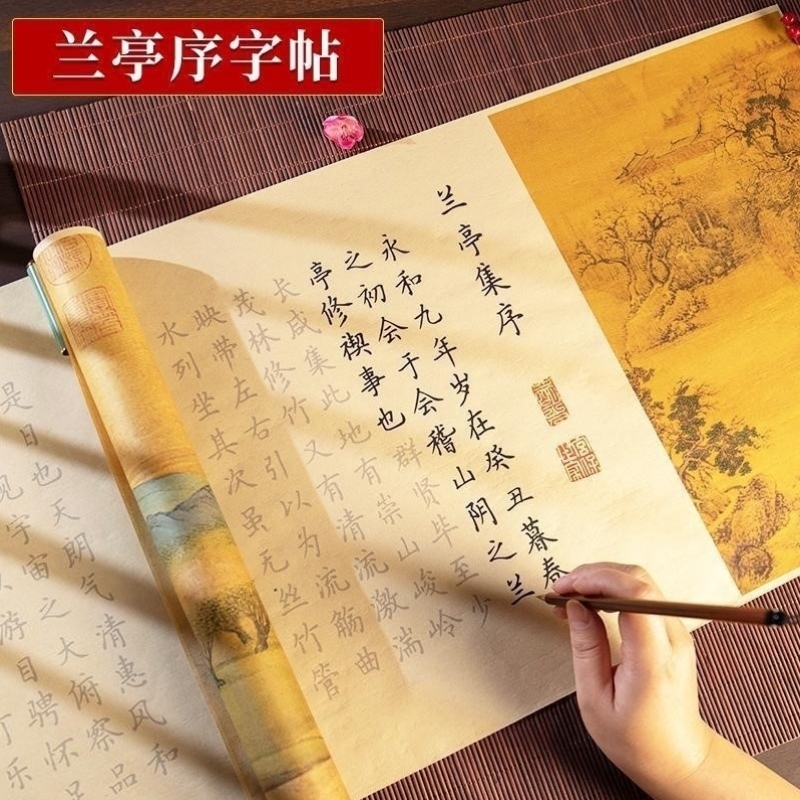 兰亭序字帖
兰亭集序
永和九年岁在癸丑暮春
之初会于会稽山阴之兰
亭修禊事也群贤毕至少
长咸集此地有崇山峻岭
茂林修竹又有清流激湍
映带左右引以为流觞曲
水列坐其次虽无丝竹管
是日也天朗气清惠风和
宇宙之大俯察品
游目骋怀
乐